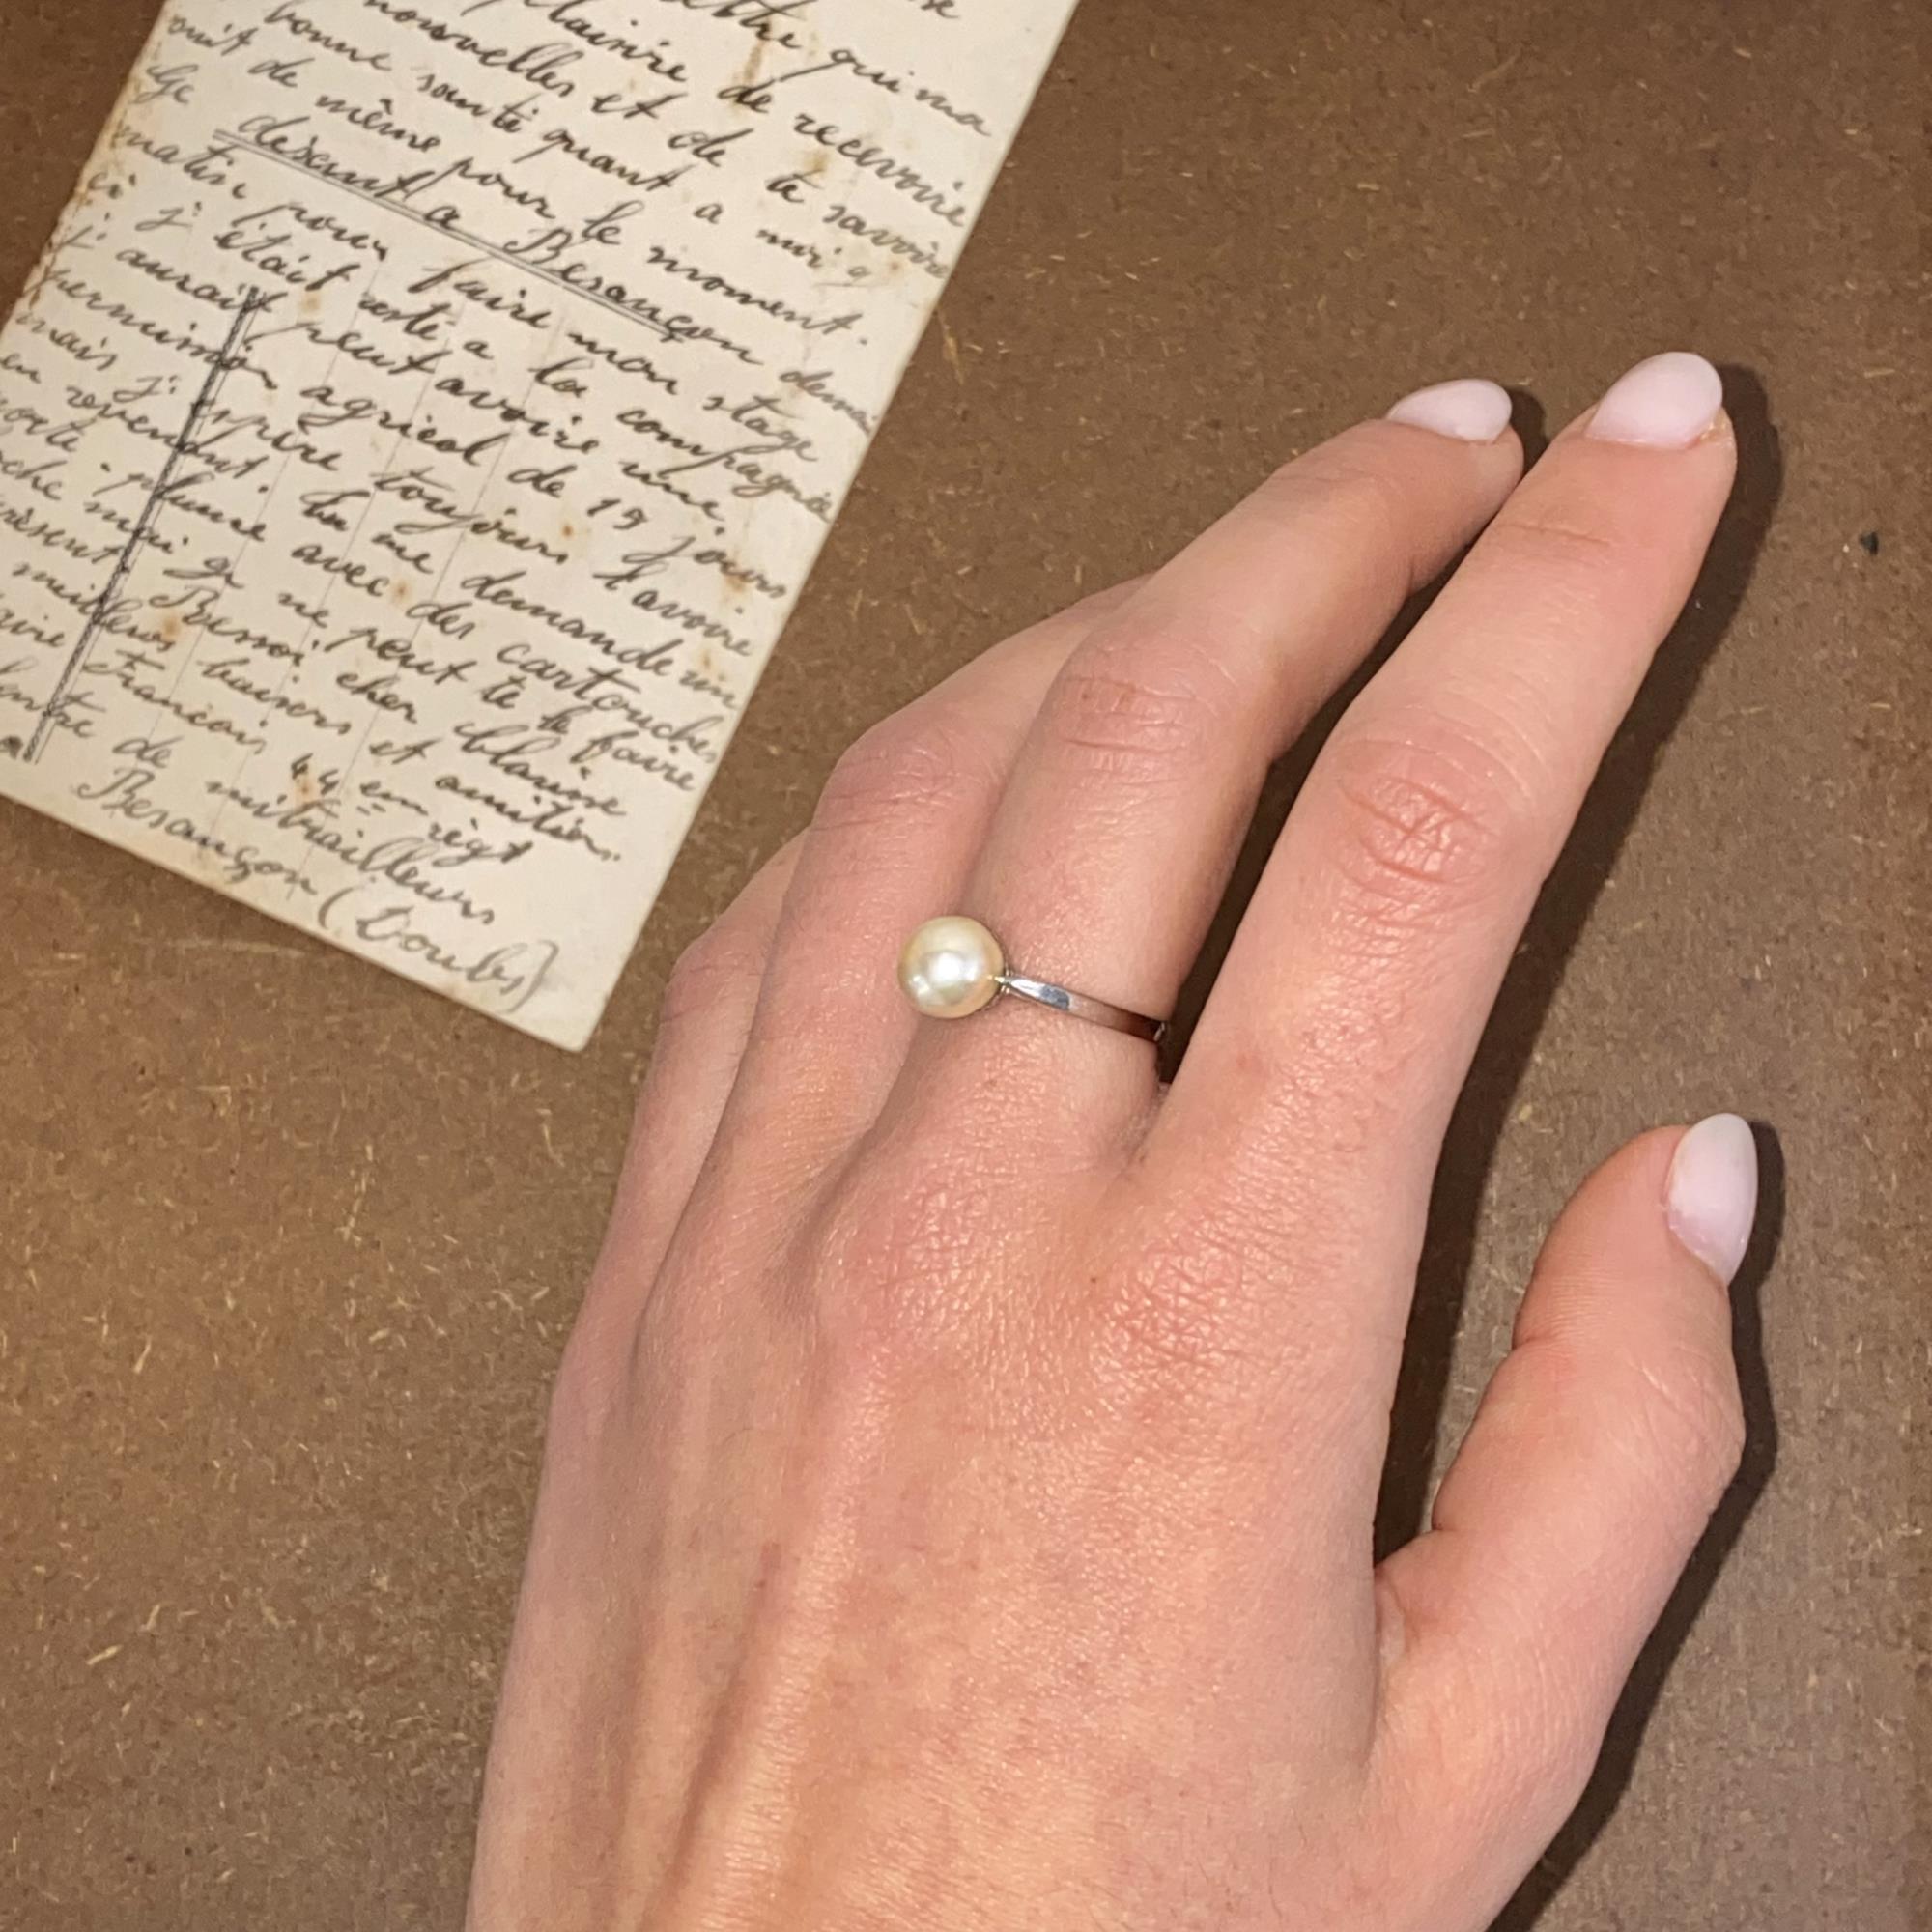 lettre qui ma
plainire de recevoire
nouvelles et de te savoire
bonne santé quant a moi g
ouit de même pour le moment.
Ge desent a Besançon demain
matin pour faire mon stage
ci j'était resté a la compagnie
j'aurait peut avoire une
permision agricol de 19 jours
mais j'espère toujours l'avoire
en revenant. tu me demande un
porte-plume avec des cartouches
mai ge ne peut te le faire
présent. Recoi cher
milleurs baisers et amitier.
Francois 44 em régt
de mitrailleurs
Besançon (Doubs)